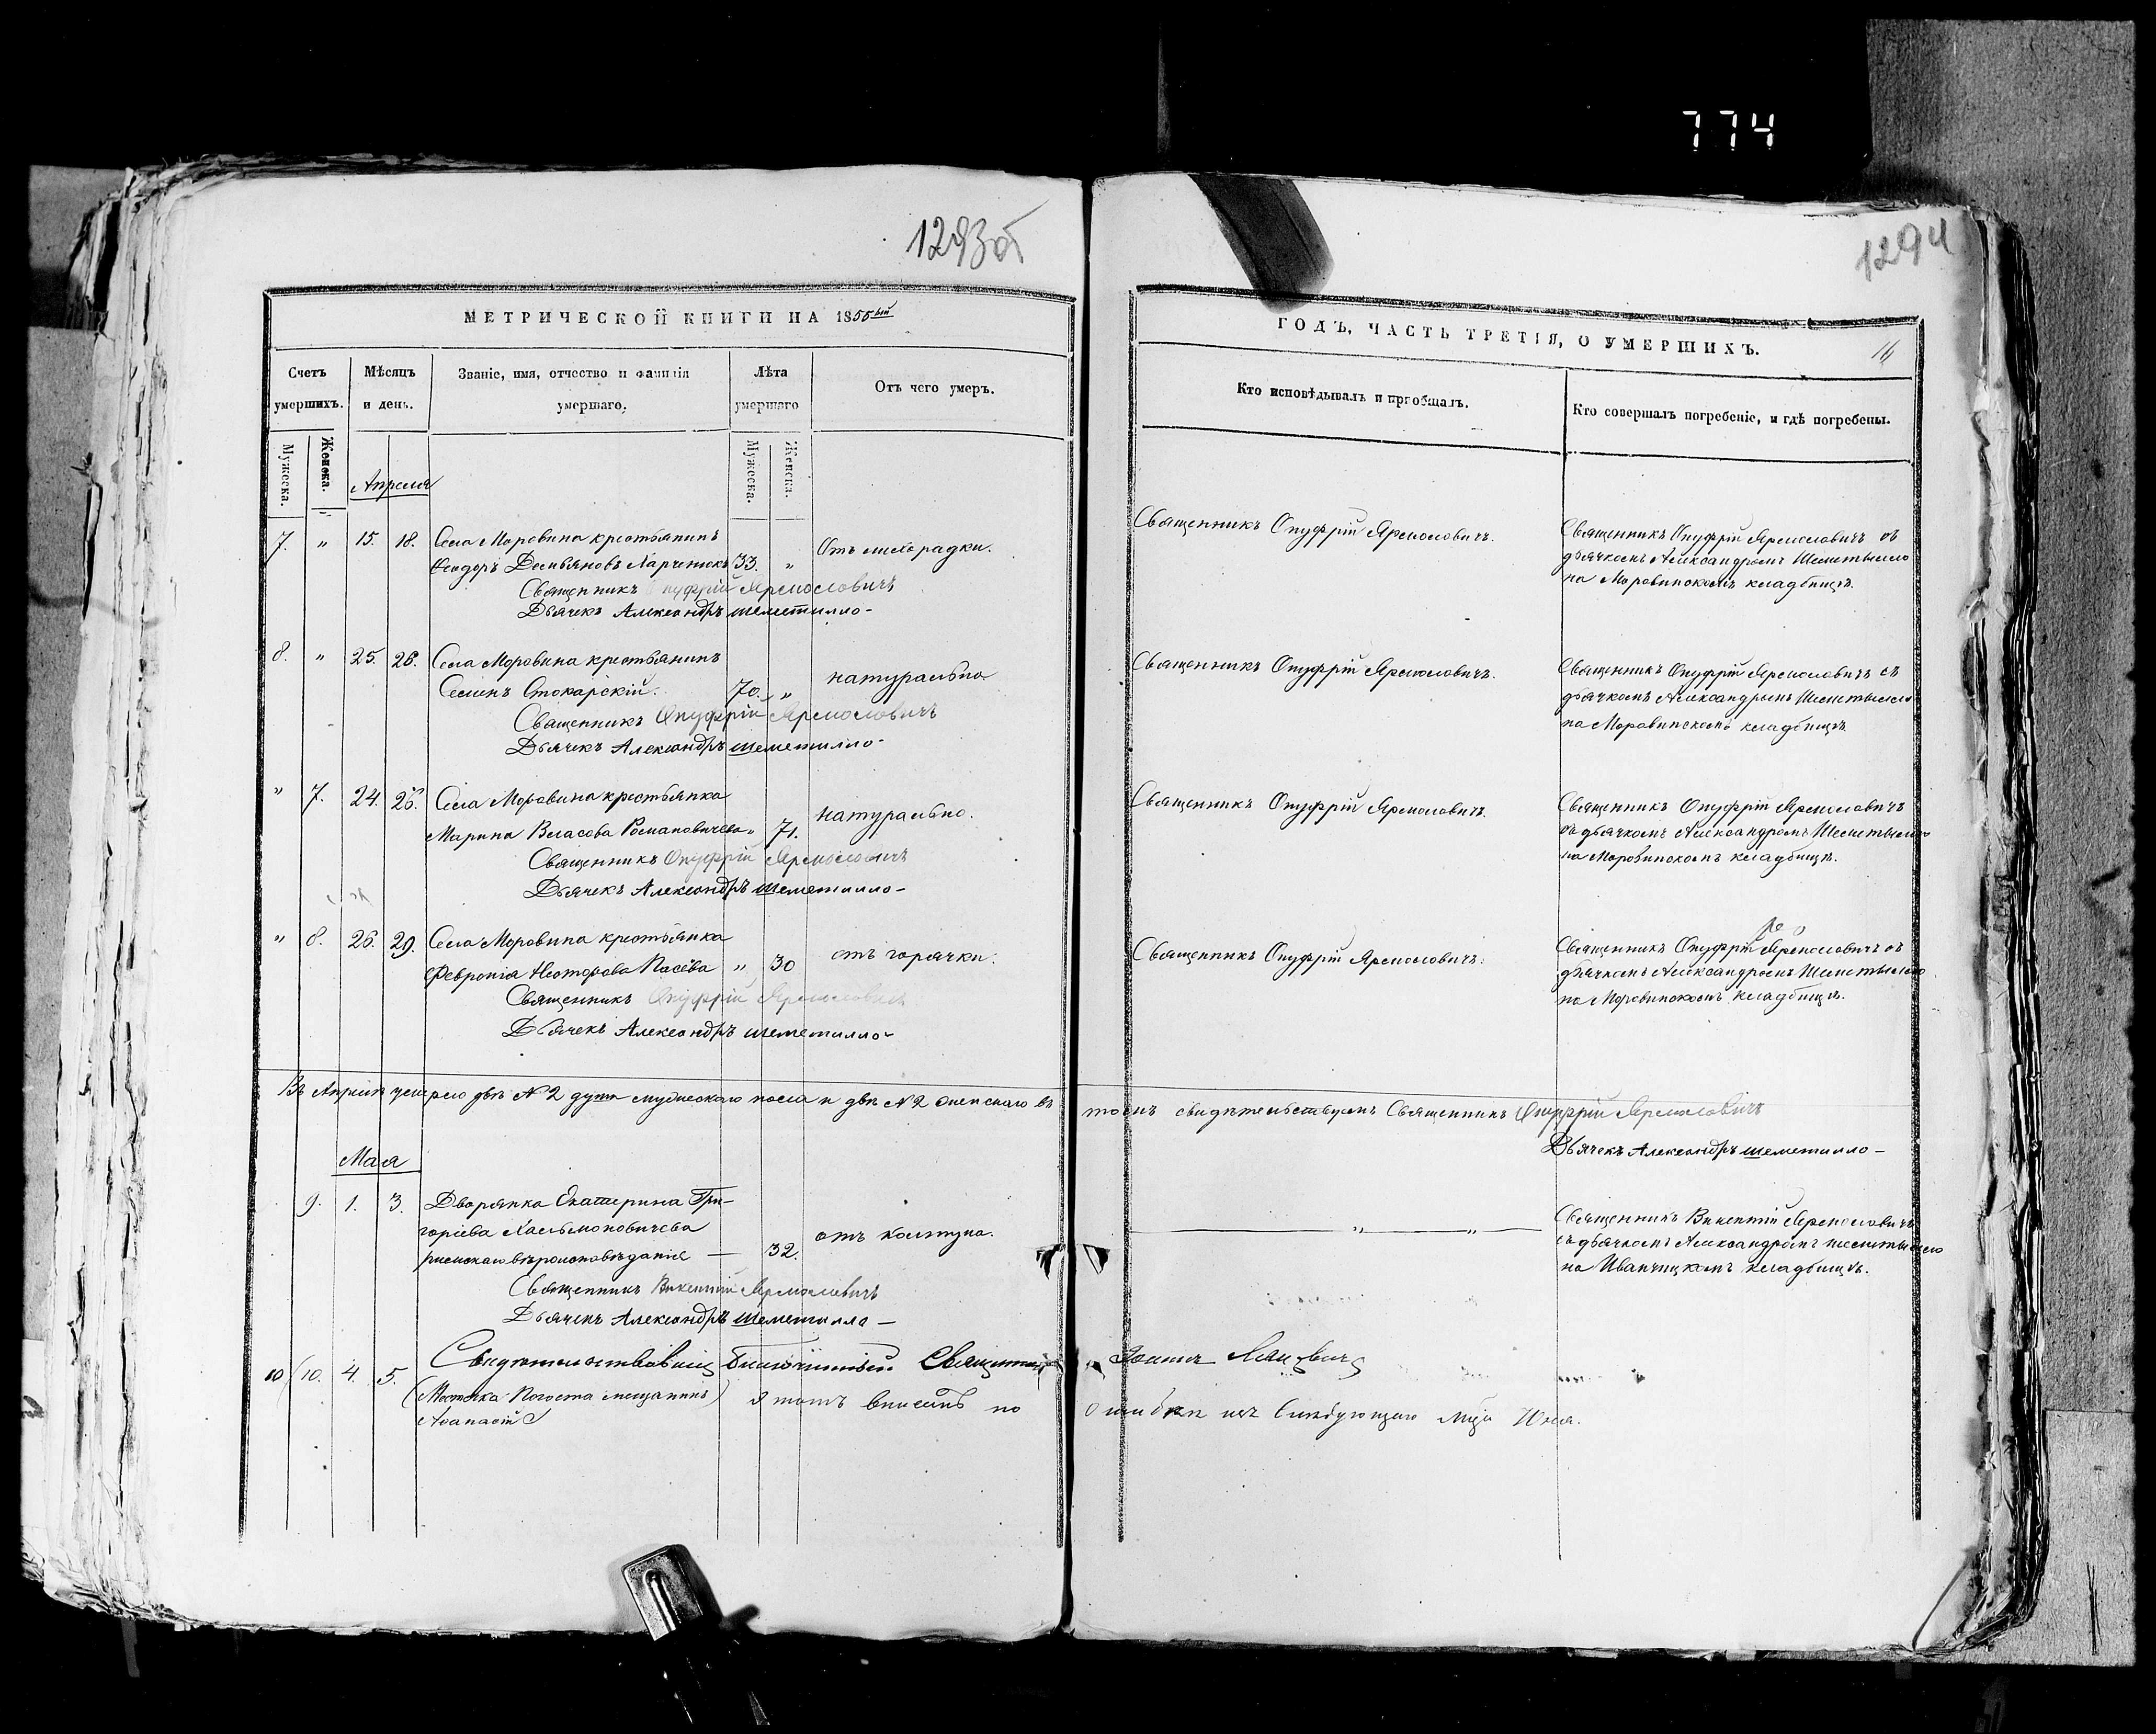 774
1293об
1294
МЕТРИЧЕСКОЙ КНИГИ НА 1855ый
ГОДЪ, ЧАСТЬ ТРЕТІЯ, О УМЕРШИХЪ.
16
Счетъ умершихъ.
Мѣсяцъ и день.
Званіе, имя, отчество и фамилія умершаго.
Лѣта умершаго
Отъ чего умеръ.
Кто исповѣдывалъ и пріобщалъ.
Кто совершалъ погребеніе, и гдѣ погребены.
Мужеска.
Женска.
Мужеска.
Женска.
Апреля
7. " 15. 18. Села Моровина крестьянинъ
Ѳеодоръ Демьяновъ Харченюкъ 33. " Отъ лихорадки.
Священникъ Онуфрій Ярмоловичъ
Дьячекъ Александръ Шеметилло
Священникъ Онуфрій Ярмоловичъ.
Священникъ Онуфрій Ярмоловичъ съ
дьячкомъ Александромъ Шеметылло
на Моровинскомъ кладбищѣ.
8. " 25. 26. Села Моровина крестьянинъ
Семенъ Стокарскій. 70. " натурально
Священникъ Онуфрій Ярмоловичъ
Дьячекъ Александръ Шеметилло
Священникъ Онуфрій Ярмоловичъ.
Священникъ Онуфрій Ярмоловичъ съ
дьячкомъ Александромъ Шеметылло
на Моровинскомъ кладбищѣ.
" 7. 24. 26. Села Моровина крестьянка
Марина Власова Романовичева " 71. натурально.
Священникъ Онуфрій Ярмоловичъ
Дьячекъ Александръ Шеметилло
Священникъ Онуфрій Ярмоловичъ.
Священникъ Онуфрій Ярмоловичъ
съ дьячкомъ Александромъ Шеметылло
на Моровинскомъ кладбищѣ.
" 8. 26. 29. Села Моровина крестьянка
Февронія Несторова Пасева " 30 отъ горячки.
Священникъ Онуфрій Ярмоловичъ
Дьячекъ Александръ Шеметилло
Священникъ Онуфрій Ярмоловичъ.
Священникъ Онуфрій Ярмоловичъ съ
дьячкомъ Александромъ Шеметылло
на Моровинскомъ кладбищѣ.
Въ Апрѣлѣ умерло двѣ № 2 души мужескаго пола и двѣ № 2 женскаго въ томъ свидѣтельствуемъ Священникъ Онуфрій Ярмоловичъ
Дьячекъ Александръ Шеметилло
Мая
9. 1. 3. Дворянка Екатерина Гри-
горіева
римскаго вѣроисповѣданія — 32. отъ колтуна.
Священникъ Викентий Ярмоловичъ
Дьячекъ Александръ Шеметилло
" "
Священникъ Викентій Ярмоловичъ
съ дьячкомъ Александромъ Шеметылло
на Иванчицкомъ кладбищѣ.
Свидѣтельствовавшій благочинный Священникъ Іоаннъ
10 (10. 4. 5. (Мѣстечка Погоста мещанинъ) я тотъ вписанъ по ошибки изъ слѣдующаго мѣца Юня.
Аѳанасій